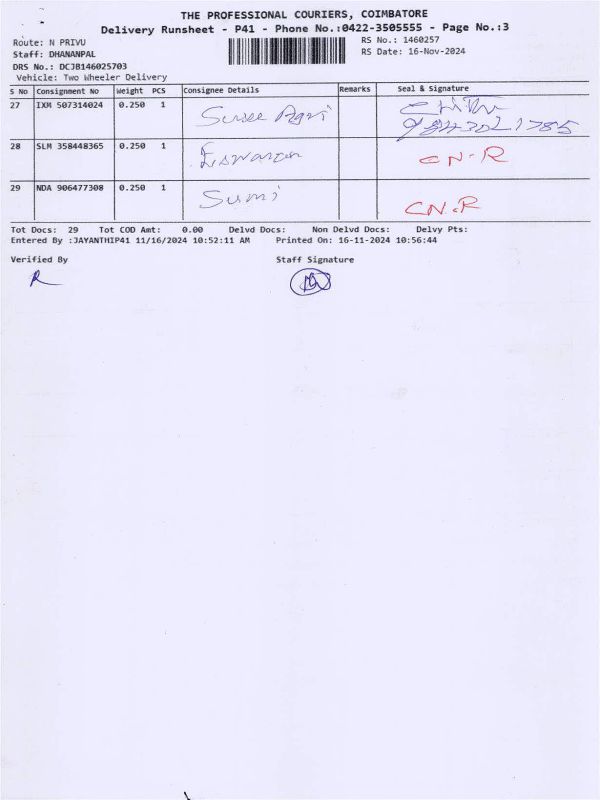 THE PROFESSIONAL COURIERS, COIMBATORE
Delivery Runsheet - P41 - Phone No.:0422-3505555 - Page No.:3
Route: N PRIVU
RS No.: 1460257
Staff: DHANANPAL
RS Date: 16-Nov-2024
DRS No.: DCJB146025703
Vehicle: Two Wheeler Delivery
S No Consignment No Weight PCS Consignee Details Remarks Seal & Signature
27 IXM 507314024 0.250 1
28 SLM 358448365 0.250 1 Eswaran CN-R
29 NDA 906477308 0.250 1 Sumi CN.R
Tot Docs: 29 Tot COD Amt: 0.00 Delvd Docs: Non Delvd Docs: Delvy Pts:
Entered By :JAYANTHIP41 11/16/2024 10:52:11 AM Printed On: 16-11-2024 10:56:44
Verified By Staff Signature
R